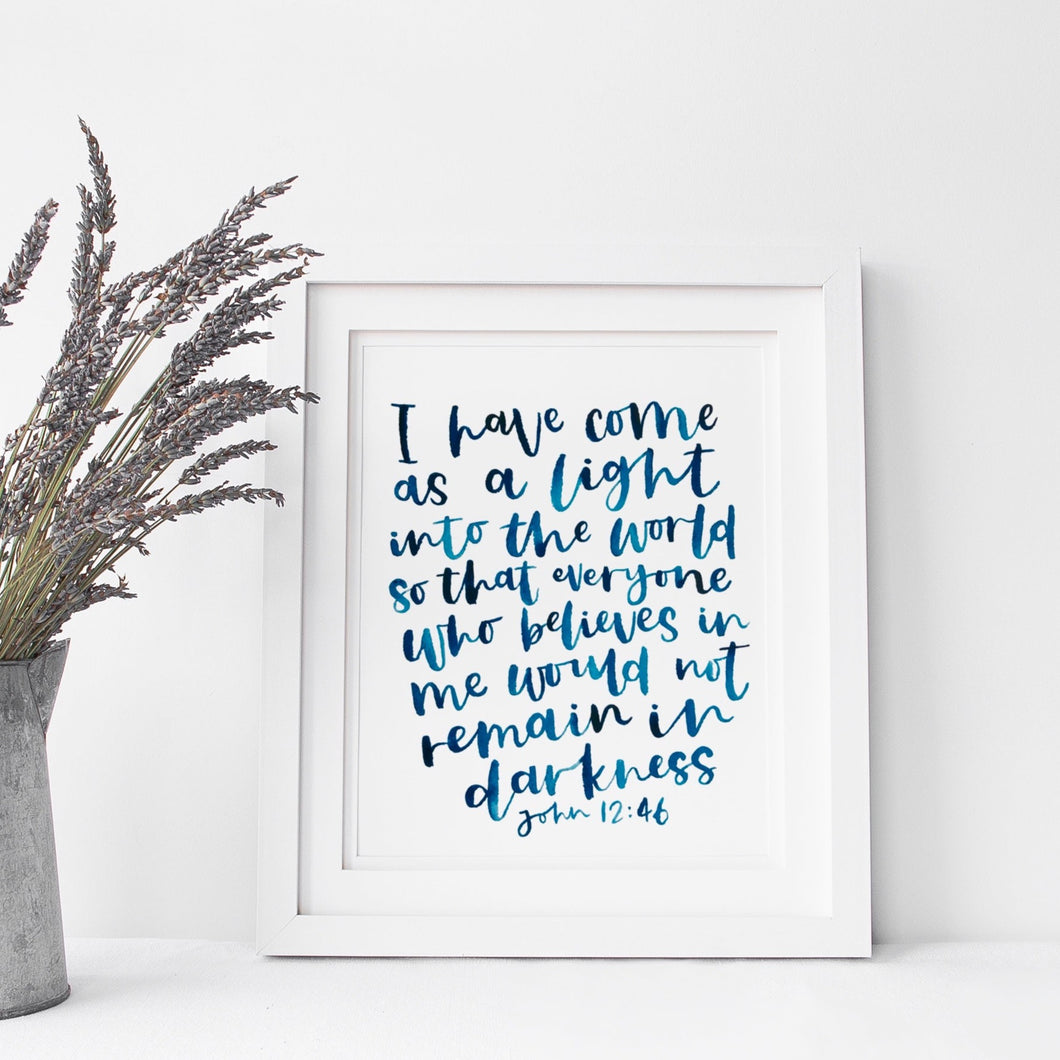 I have come
as a light
into the world
so that everyone
who believes in
me would not
remain in
darkness
john 12:46